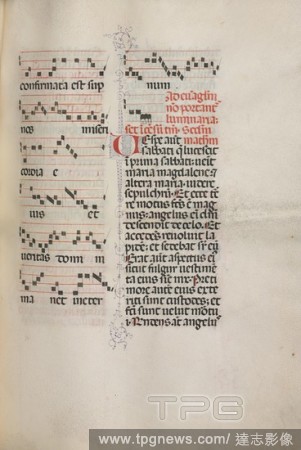 confirmata est sup
nos miseri
cordia e
ius et
veritas domi
ma net in eter
num
Ad eūāgliū
nō portant
luminaria:
sed
Vespere aūt
sabbati que lucescit
in prima sabbati: ueīt
maria magdalene: ⁊
altera maria: uidere
sepulchrū. Et ecce ter
re motus fc̄s ē mag
nus: angelus eī dn̄i
descendit de celo. Et
accedēs reuoluit la
pidē: et sedebat sr̄ eū.
Erat aūt aspectus eī
sicut fulgur uestimē
ta eius sic̄ nix. Preti
more aūt eius exte
riti sunt custodes: et
fc̄i sunt uelut mortu
i. Rn̄dens aūt angelu
TPG
www.tpgnews.com/達志影像